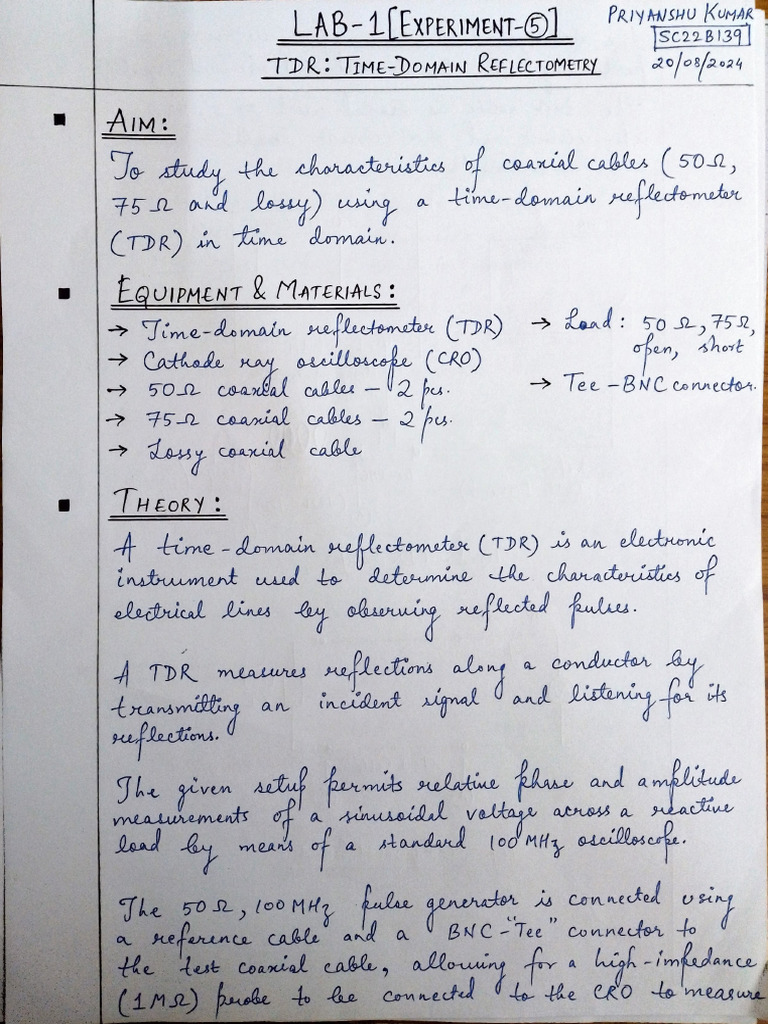 LAB-1[EXPERIMENT-⑤]
PRIYANSHU KUMAR
SC22B139
20/08/2024
TDR: TIME-DOMAIN REFLECTOMETRY
AIM:
To study the characteristics of coaxial cables (50Ω,
75Ω and lossy) using a time-domain reflectometer
(TDR) in time domain.
EQUIPMENT & MATERIALS:
→ Time-domain reflectometer (TDR)
→ Cathode ray oscilloscope (CRO)
→ 50Ω coaxial cables – 2 pcs.
→ 75Ω coaxial cables – 2 pcs.
→ Lossy coaxial cable
→ Load: 50Ω, 75Ω,
open, short
→ Tee-BNC connector.
THEORY:
A time-domain reflectometer (TDR) is an electronic
instrument used to determine the characteristics of
electrical lines by observing reflected pulses.
A TDR measures reflections along a conductor by
transmitting an incident signal and listening for its
reflections.
The given setup permits relative phase and amplitude
measurements of a sinusoidal voltage across a reactive
load by means of a standard 100MHz oscilloscope.
The 50Ω, 100MHz pulse generator is connected using
a reference cable and a BNC-"Tee" connector to
the test coaxial cable, allowing for a high-impedance
(1MΩ) probe to be connected to the CRO to measure